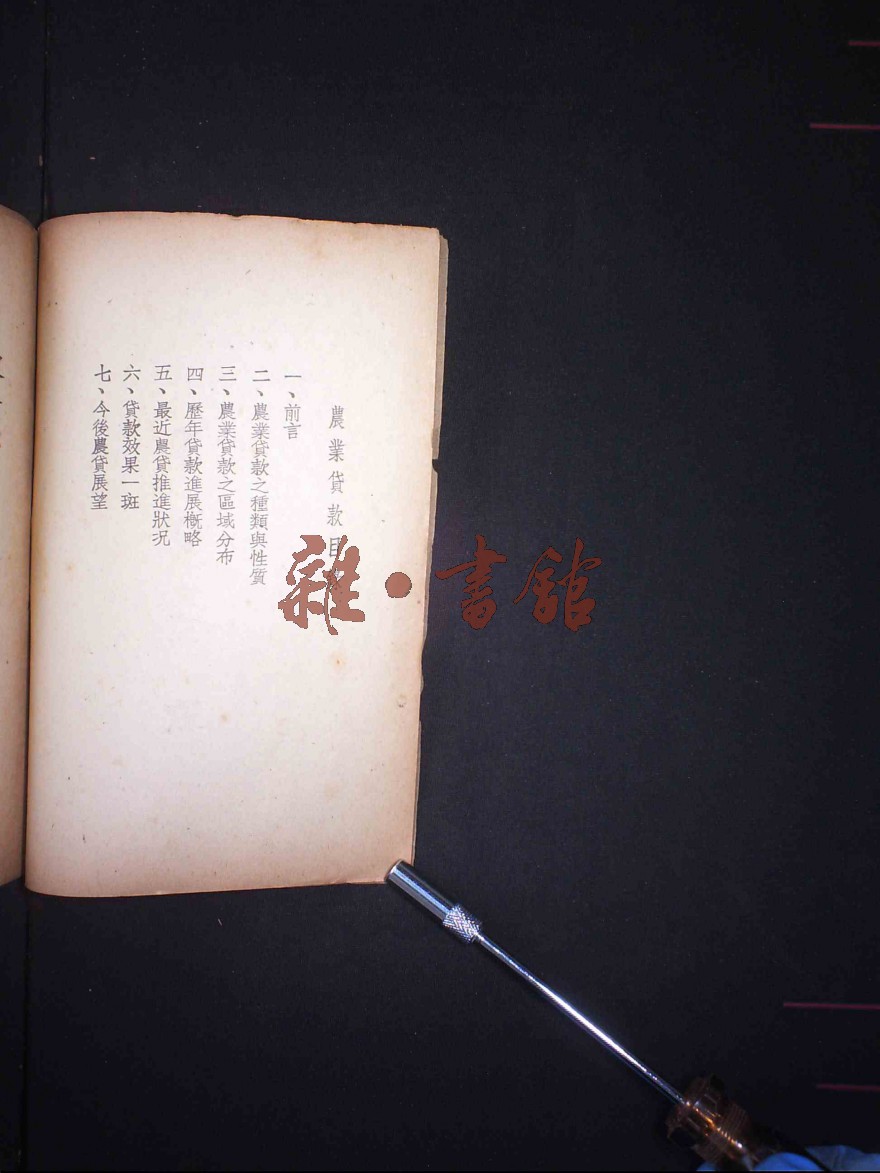 農業貸款目
一、前言
二、農業貸款之種類與性質
三、農業貸款之區域分布
四、歷年貸款進展概略
五、最近農貸推進狀况
六、貸款效果一斑
七、今後農貸展望
雜·書館